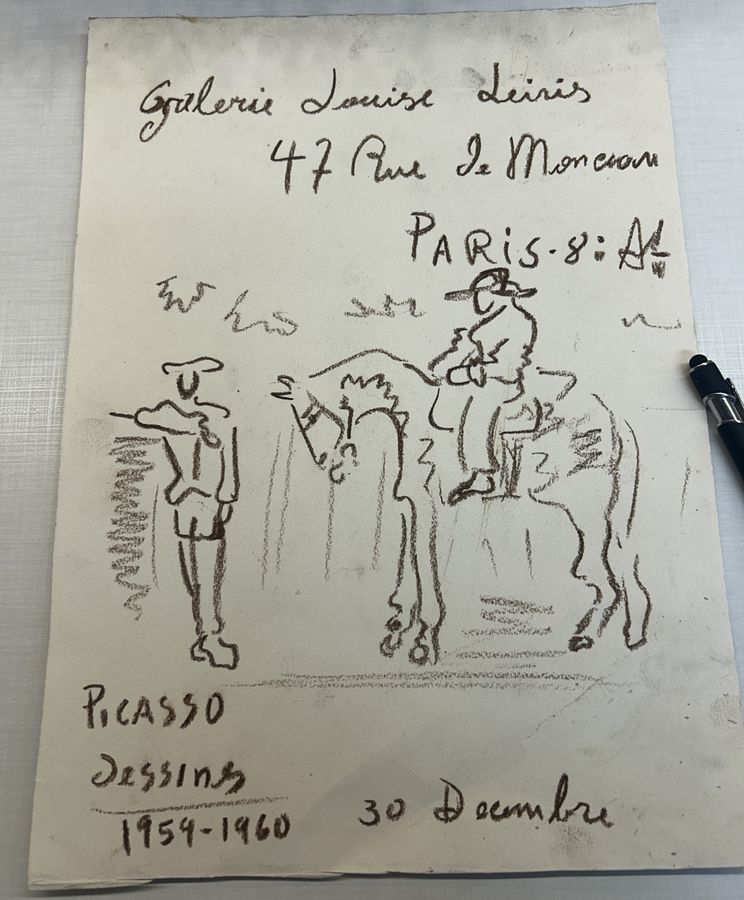 Galerie Louise Leiris
47 Rue de Monceau
PARIS-8:
PICASSO
Dessins
1959-1960
30 Decembre